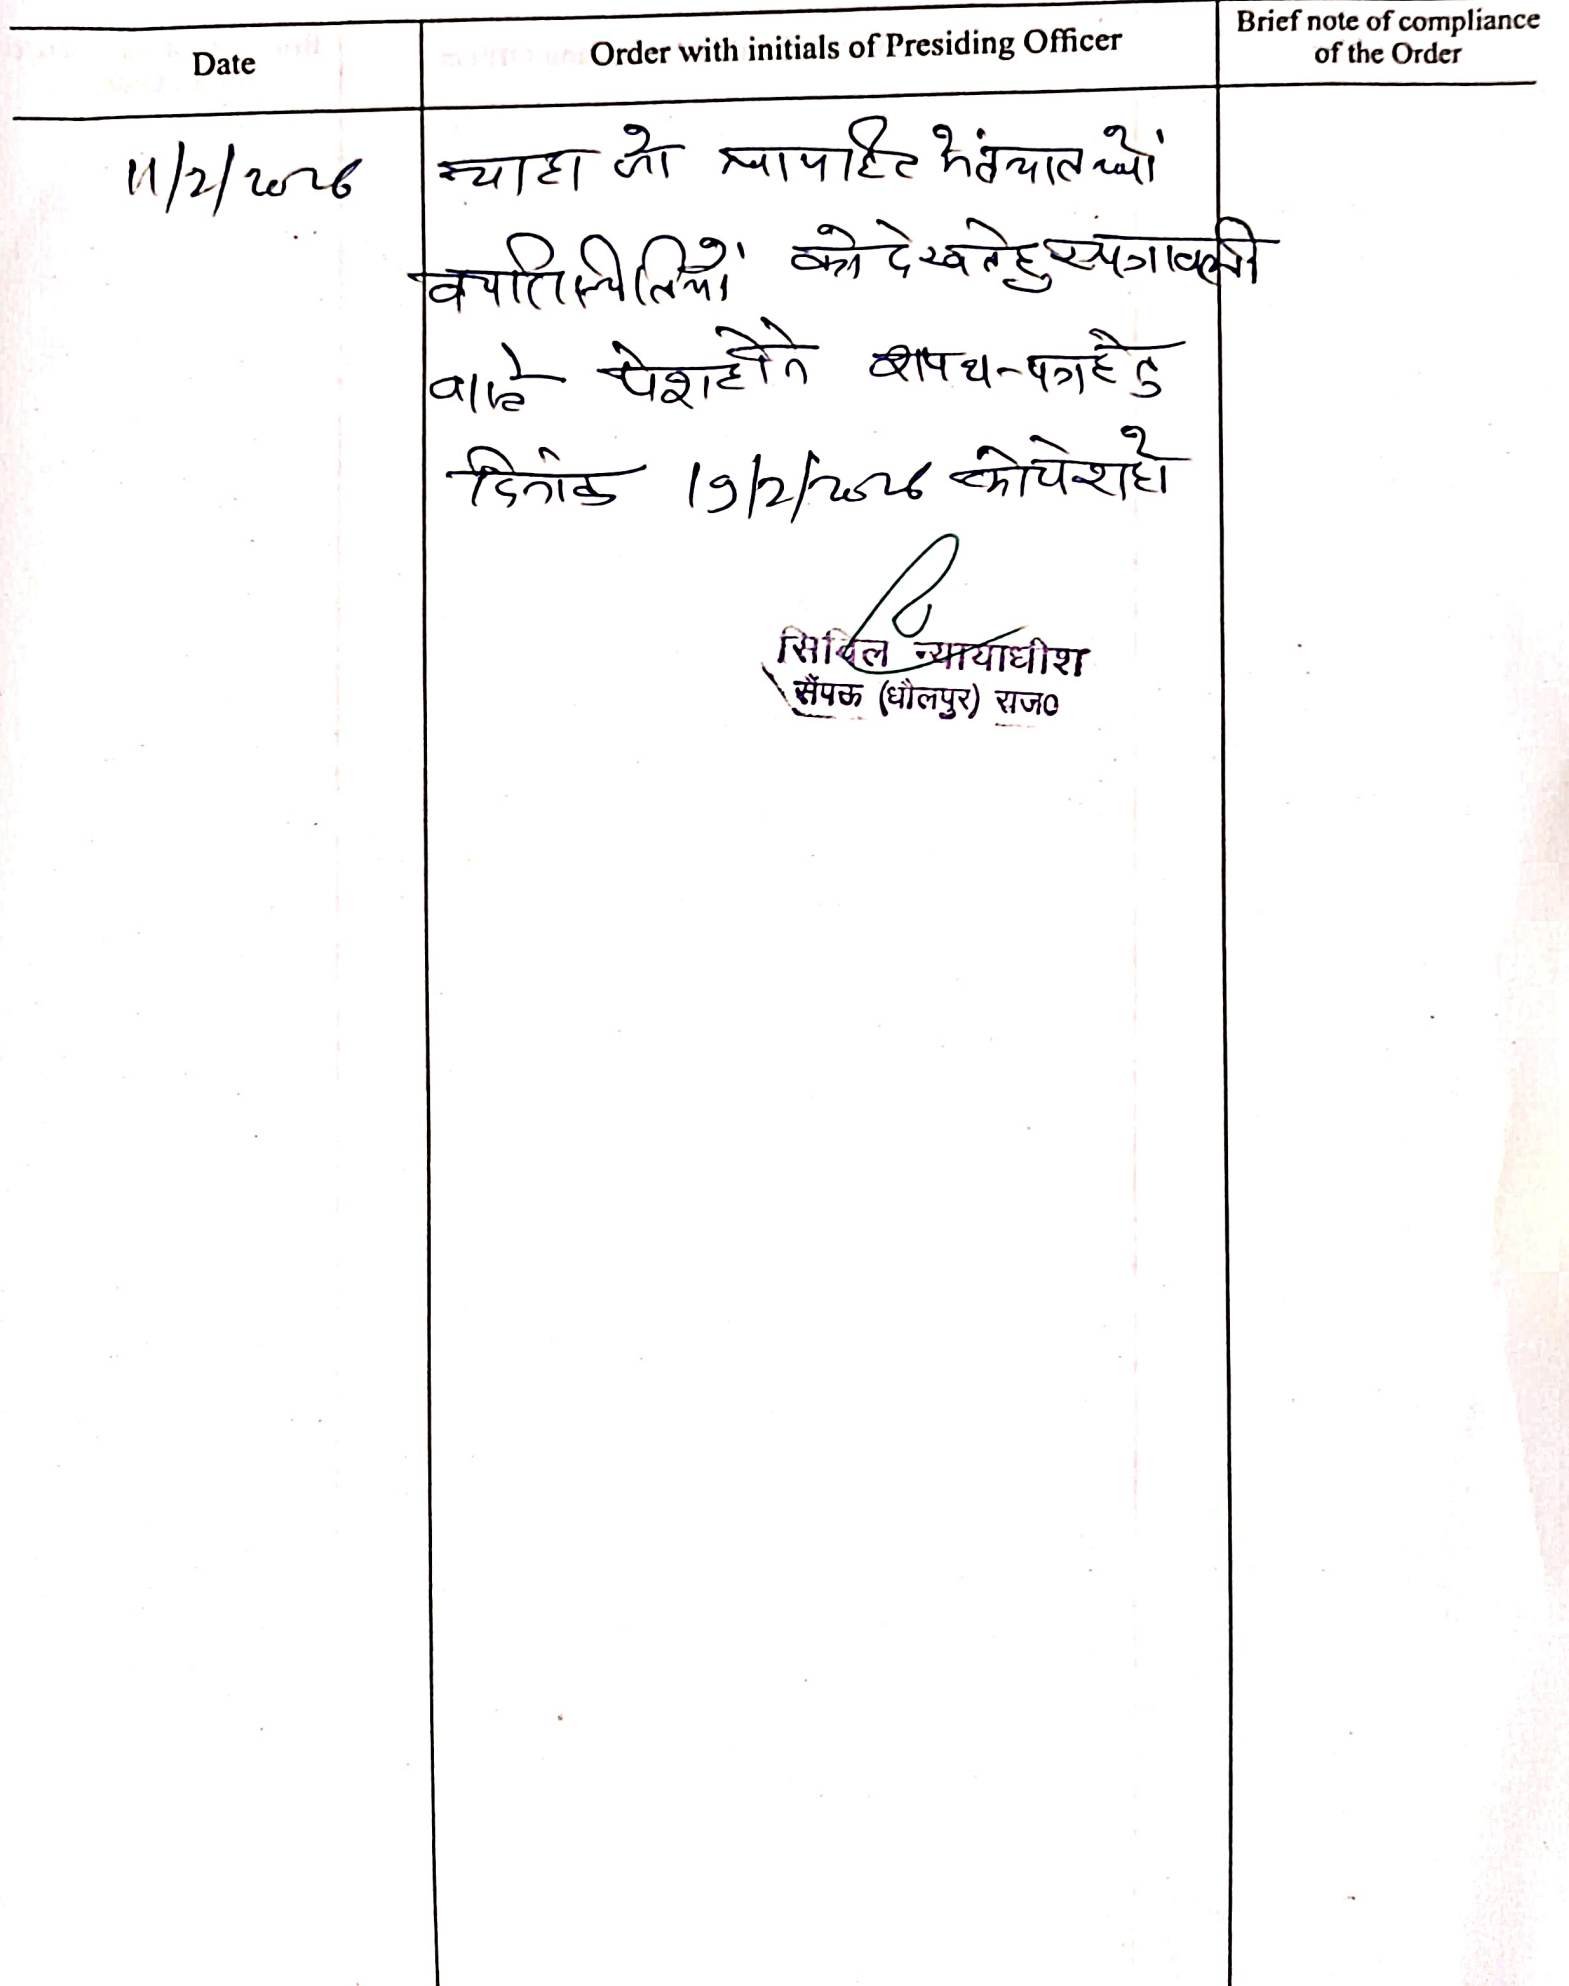 Date
Order with initials of Presiding Officer
Brief note of compliance
of the Order
11/2/2026
न्यायहित में व तथ्यों
व परिस्थितियों को देखते हुए पत्रावली
वास्ते पेश होने शपथ-पत्र हेतु
दिनांक 19/2/2026 को पेश हो
सिविल न्यायाधीश
सैंपऊ (धौलपुर) राज०